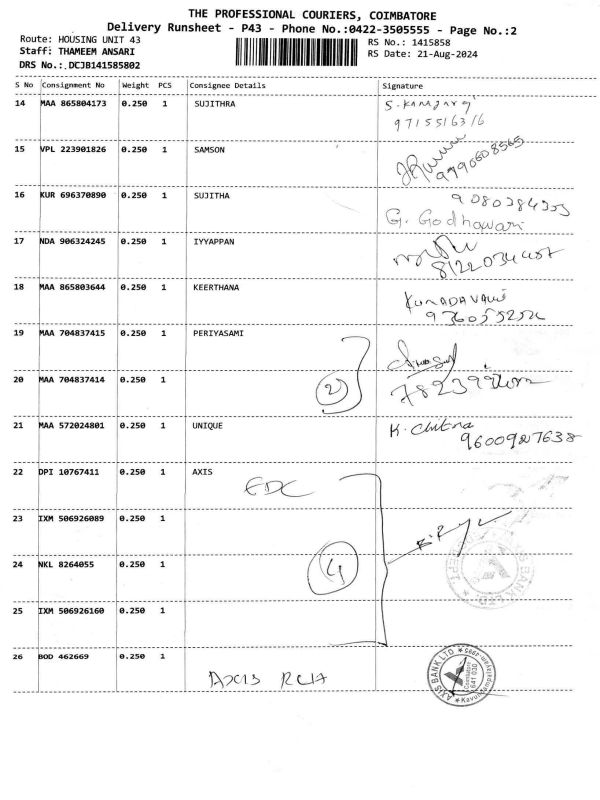 THE PROFESSIONAL COURIERS, COIMBATORE
Delivery Runsheet - P43 - Phone No.:0422-3505555 - Page No.:2
Route: HOUSING UNIT 43
RS No.: 1415858
Staff: THAMEEM ANSARI
RS Date: 21-Aug-2024
DRS No.:.DCJB141585802
S No Consignment No Weight PCS Consignee Details Signature
14 MAA 865804173 0.250 1 SUJITHRA
9715516316
15 VPL 223901826 0.250 1 SAMSON
9790608565
16 KUR 696370890 0.250 1 SUJITHA
G. Godhawari
17 NDA 906324245 0.250 1 IYYAPPAN
18 MAA 865803644 0.250 1 KEERTHANA
19 MAA 704837415 0.250 1 PERIYASAMI
20 MAA 704837414 0.250 1
2
21 MAA 572024801 0.250 1 UNIQUE K. Chitra
9600927638
22 DPI 10767411 0.250 1 AXIS
EDC
23 IXM 506926089 0.250 1
24 NKL 8264055 0.250 1
4
25 IXM 506926160 0.250 1
26 BOD 462669 0.250 1
AXIS
AXIS BANK LTD
Coimbatore
641 030